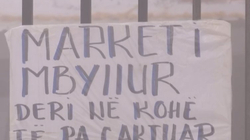 MARKETI
MBYLLUR
DERI NË KOHË
TË PA CAKTUAR